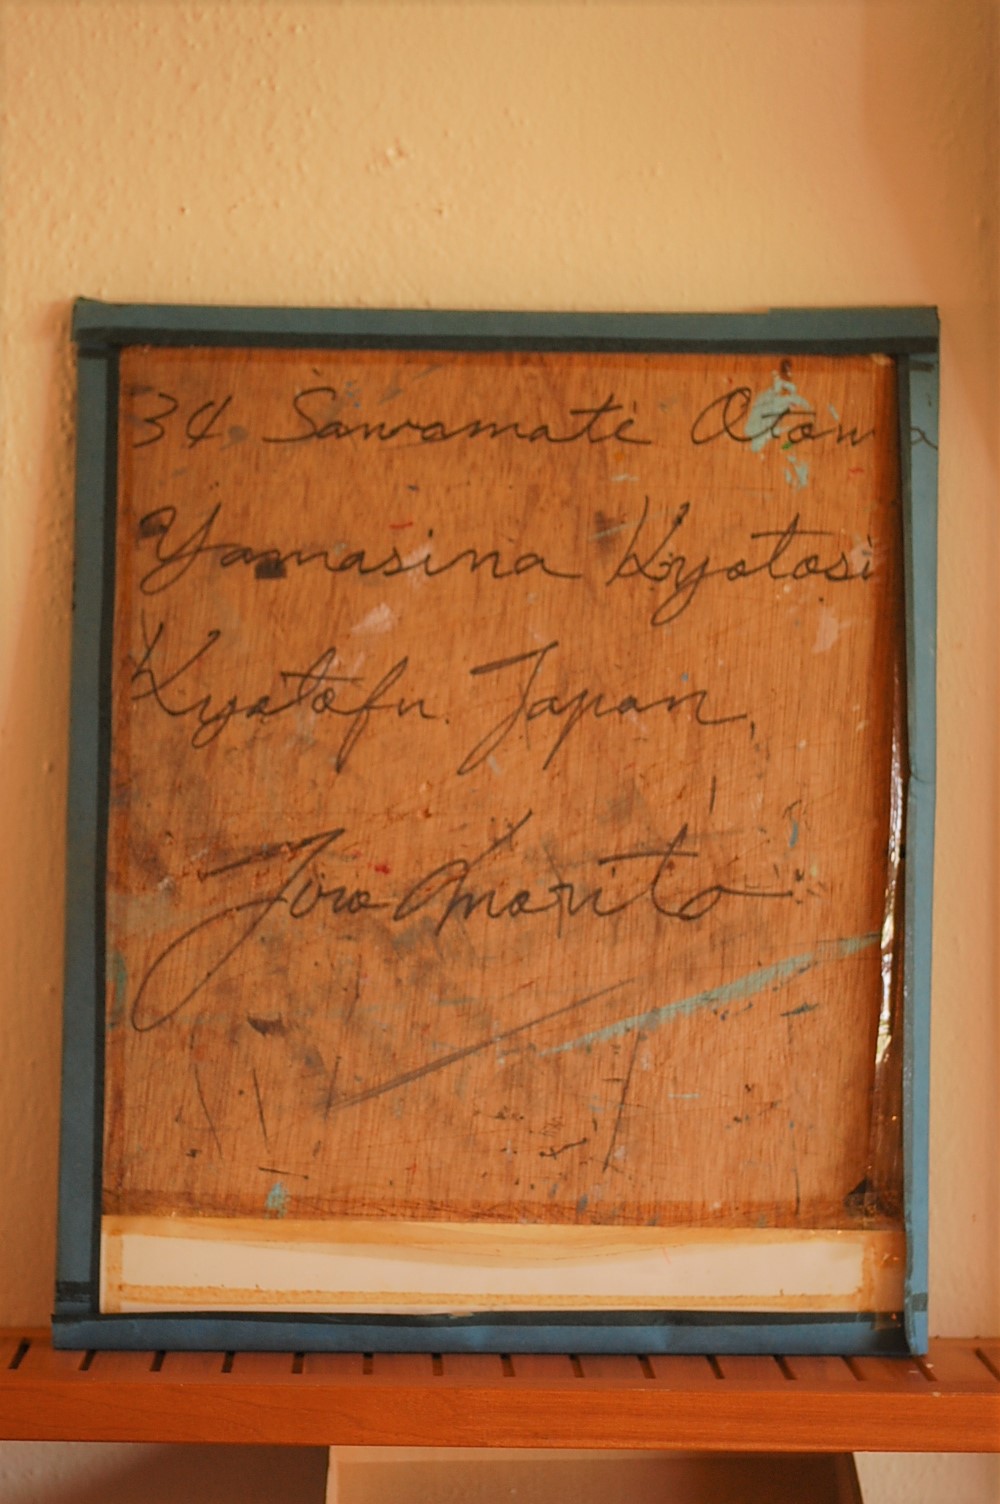 34. Sawamati Otowa
Yamasina Kyotosi
Kyotofu. Japan,
Toro Morito